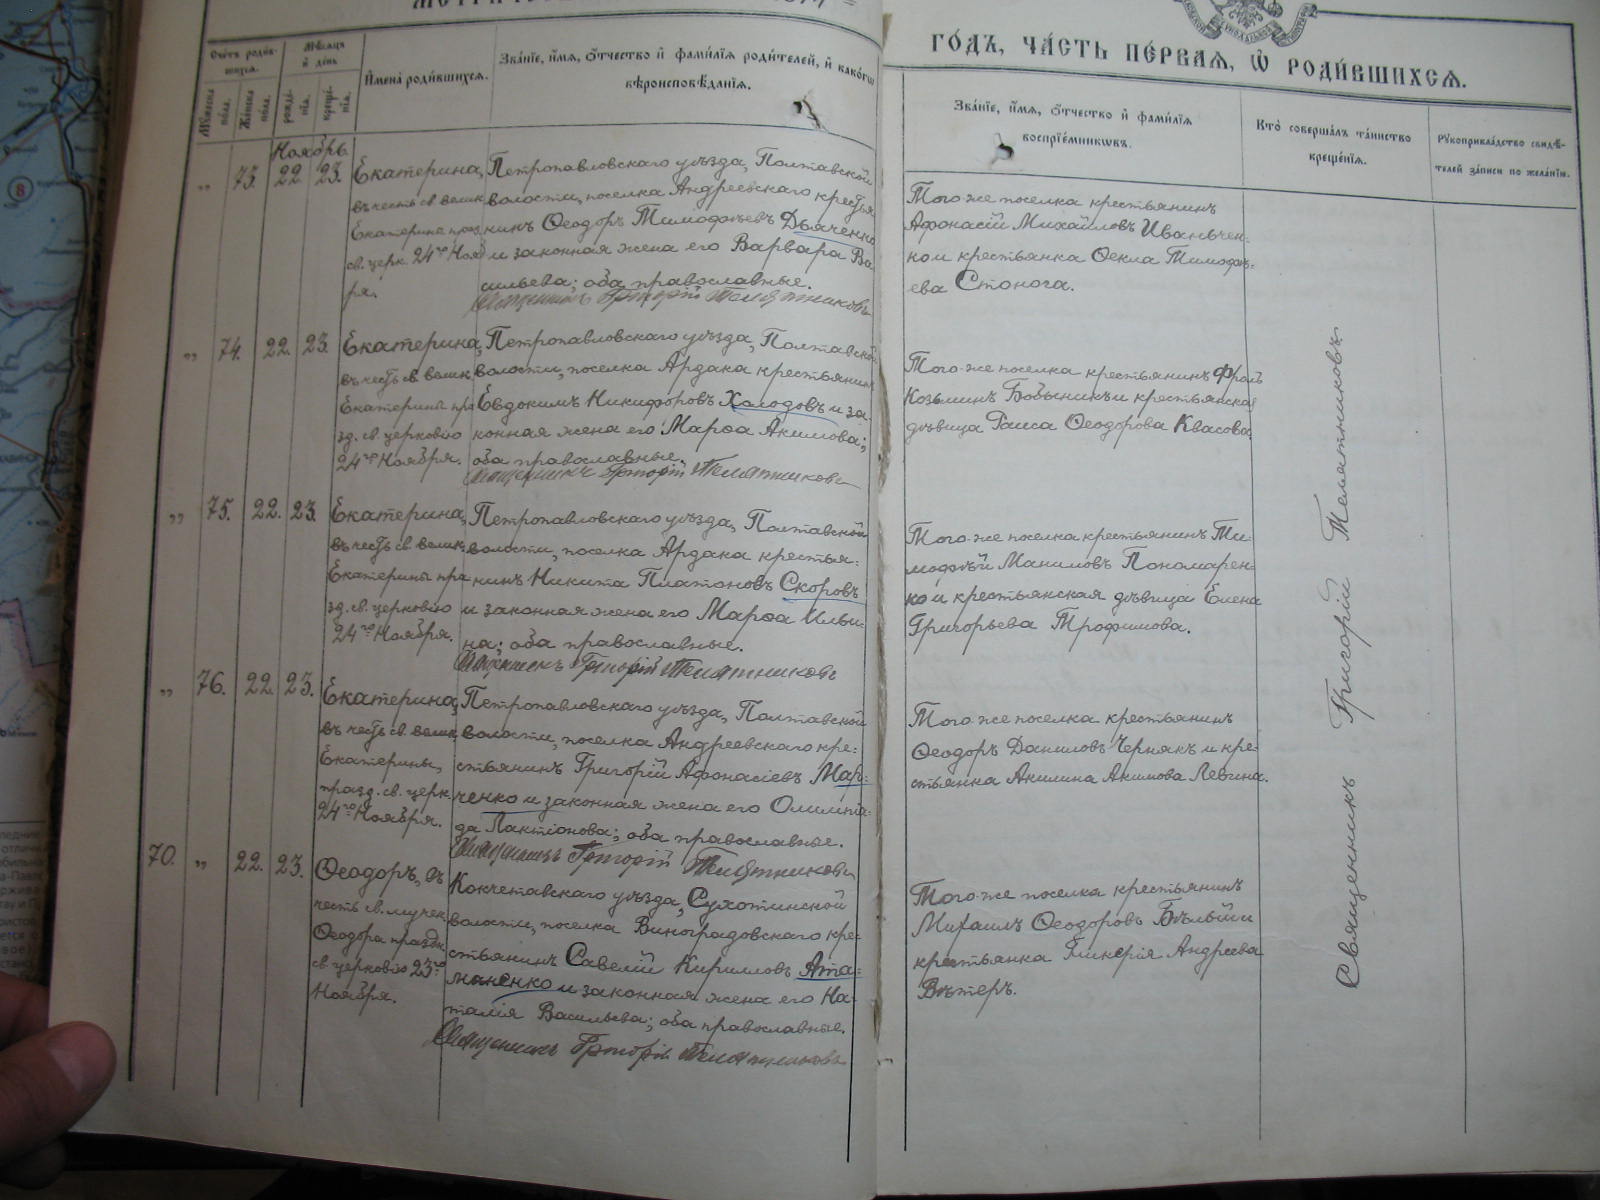 ГО́ДЪ, ЧА́СТЬ ПЕ́РВАЯ, Ѡ҆ РОДИ́ВШИХСЯ.
Счетъ роди́в-
шихся.
Мѣсяцъ
и҆ де́нь
Му́жеска
по́ла.
Же́нска
по́ла.
рожде́-
нїя.
креще́-
нїя.
И҆мена̀ роди́вшихся.
Зва́нїе, и҆́мя, ѻ҆́тчество и҆ фами́лїя роди́телей, и҆ како́гѡ
вѣроисповѣ́данїя.
Зва́нїе, и҆́мя, ѻ҆́тчество и҆ фами́лїя
воспрїе́мникѡвъ.
Кто̀ соверша́лъ та́инство
креще́нїя.
Рꙋкоприкла́дство свидѣ́-
телей за́писи по жела́нїю.
Ноябрь.
„ 73. 22. 23.
Екатерина,
въ честь св. велик.
Екатерине праз.
св. церк. 24го Нояб-
ря.
Петропавловскаго уѣзда, Полтавской
волости, поселка Андреевскаго крестья-
нинъ Ѳеодоръ Тимофѣевъ Дьяченко
и законная жена его Варвара Ва-
сильева; оба православные.
Священникъ Григорій Телятниковъ
Того-же поселка крестьянинъ
Афонасій Михайловъ Иваньчен-
ко и крестьянка Ѳекла Тимофѣ-
ева Стонога.
„ 74. 22. 23.
Екатерина,
въ честь св. велик.
Екатерины пра
зд. св. церковію
24го Ноября.
Петропавловскаго уѣзда, Полтавской
волости, поселка Ардака крестьянинъ
Евдокимъ Никифоровъ Холодовъ и за-
конная жена его Марѳа Акимова;
оба православные.
Священникъ Григорій Телятниковъ
Того-же поселка крестьянинъ Фролъ
Козьминъ и крестьянская
дѣвица Раиса Ѳеодорова Квасова.
„ 75. 22. 23.
Екатерина,
въ честь св. велик.
Екатерины пра
зд. св. церковію
24го Ноября.
Петропавловскаго уѣзда, Полтавской
волости, поселка Ардака крестья-
нинъ Никита Платоновъ Скоровъ
и законная жена его Марѳа Ильи-
на; оба православные.
Священникъ Григорій Телятниковъ
Того-же поселка крестьянинъ Ти-
мофѣй Пономарен-
ко и крестьянская дѣвица Елена
Григорьева Трофимова.
„ 76. 22. 23.
Екатерина,
въ честь св. велик.
Екатерины,
празд. св. церк.
24го Ноября.
Петропавловскаго уѣзда, Полтавской
волости, поселка Андреевскаго кре-
стьянинъ Григорій Афонасіевъ Мар-
ченко и законная жена его Олимпіа-
да Лактіонова; оба православные.
Священникъ Григорій Телятниковъ
Того-же поселка крестьянинъ
Ѳеодоръ Даниловъ Чернякъ и кре-
стьянка Акилина Акимова Левгина.
70. „ 22. 23.
Ѳеодоръ, въ
честь св. мучен.
Ѳеодора праздн.
св. церковію 23го
Ноября.
Кокчетавскаго уѣзда, Сухотинской
волости, поселка Виноградовскаго кре-
стьянинъ Савелій Кирилловъ Ата-
маненко и законная жена его На-
талія Васильева; оба православные.
Священникъ Григорій Телятниковъ
Того-же поселка крестьянинъ
Михаилъ Ѳеодоровъ Бѣлый и
крестьянка Андреева
Вѣтеръ.
Священникъ Григорій Телятниковъ